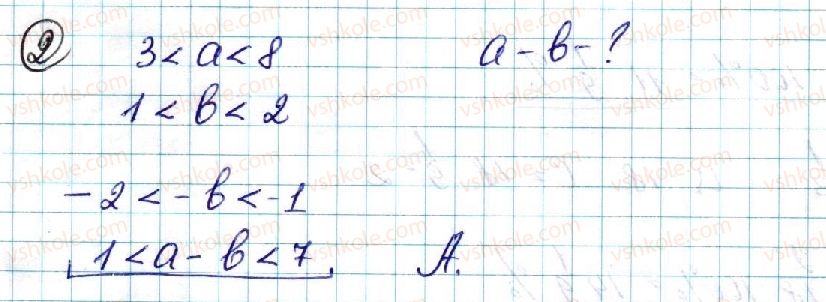 2 3 < a < 8 a - b - ?
1 < b < 2
-2 < -b < -1
1 < a - b < 7 A.